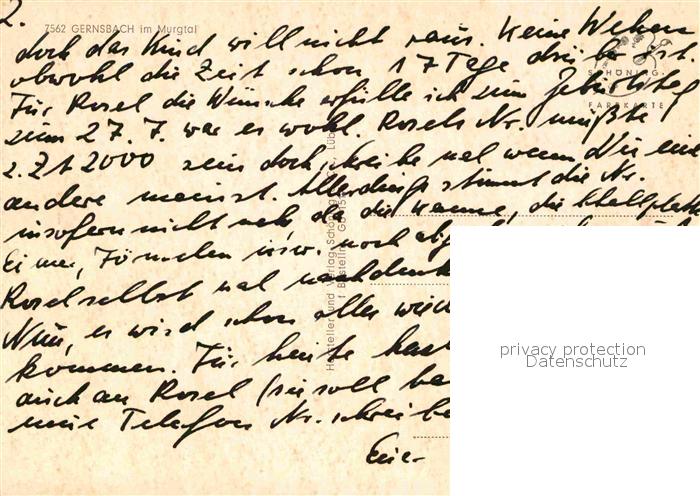 2.
7562 GERNSBACH im Murgtal
doch das Kind will nicht raus. Keine Wehen
obwohl die Zeit schon 17 Tage drüber ist.
Für Rosel die Wünsche erfülle ich zum Geburtstag
zum 27. 7. war es wohl. Rosels Nr. müßte
z. Zt 2000 sein doch schreibe mal wenn Du eine
andere meinst. Allerdings stimmt die Nr.
insofern nicht mehr, da die Kanne, die
Eimer, Förmchen usw. noch
Rosel selbst mal nachdenk
Nun, es wird schon alles wied
kommen. Für heute
auch an Rosel (sie soll
neue Telefon Nr. schreibe
SCHÖNING
FARBKARTE
Hersteller und Verlag Schöning
Bestell-Nr.
privacy protection
Datenschutz